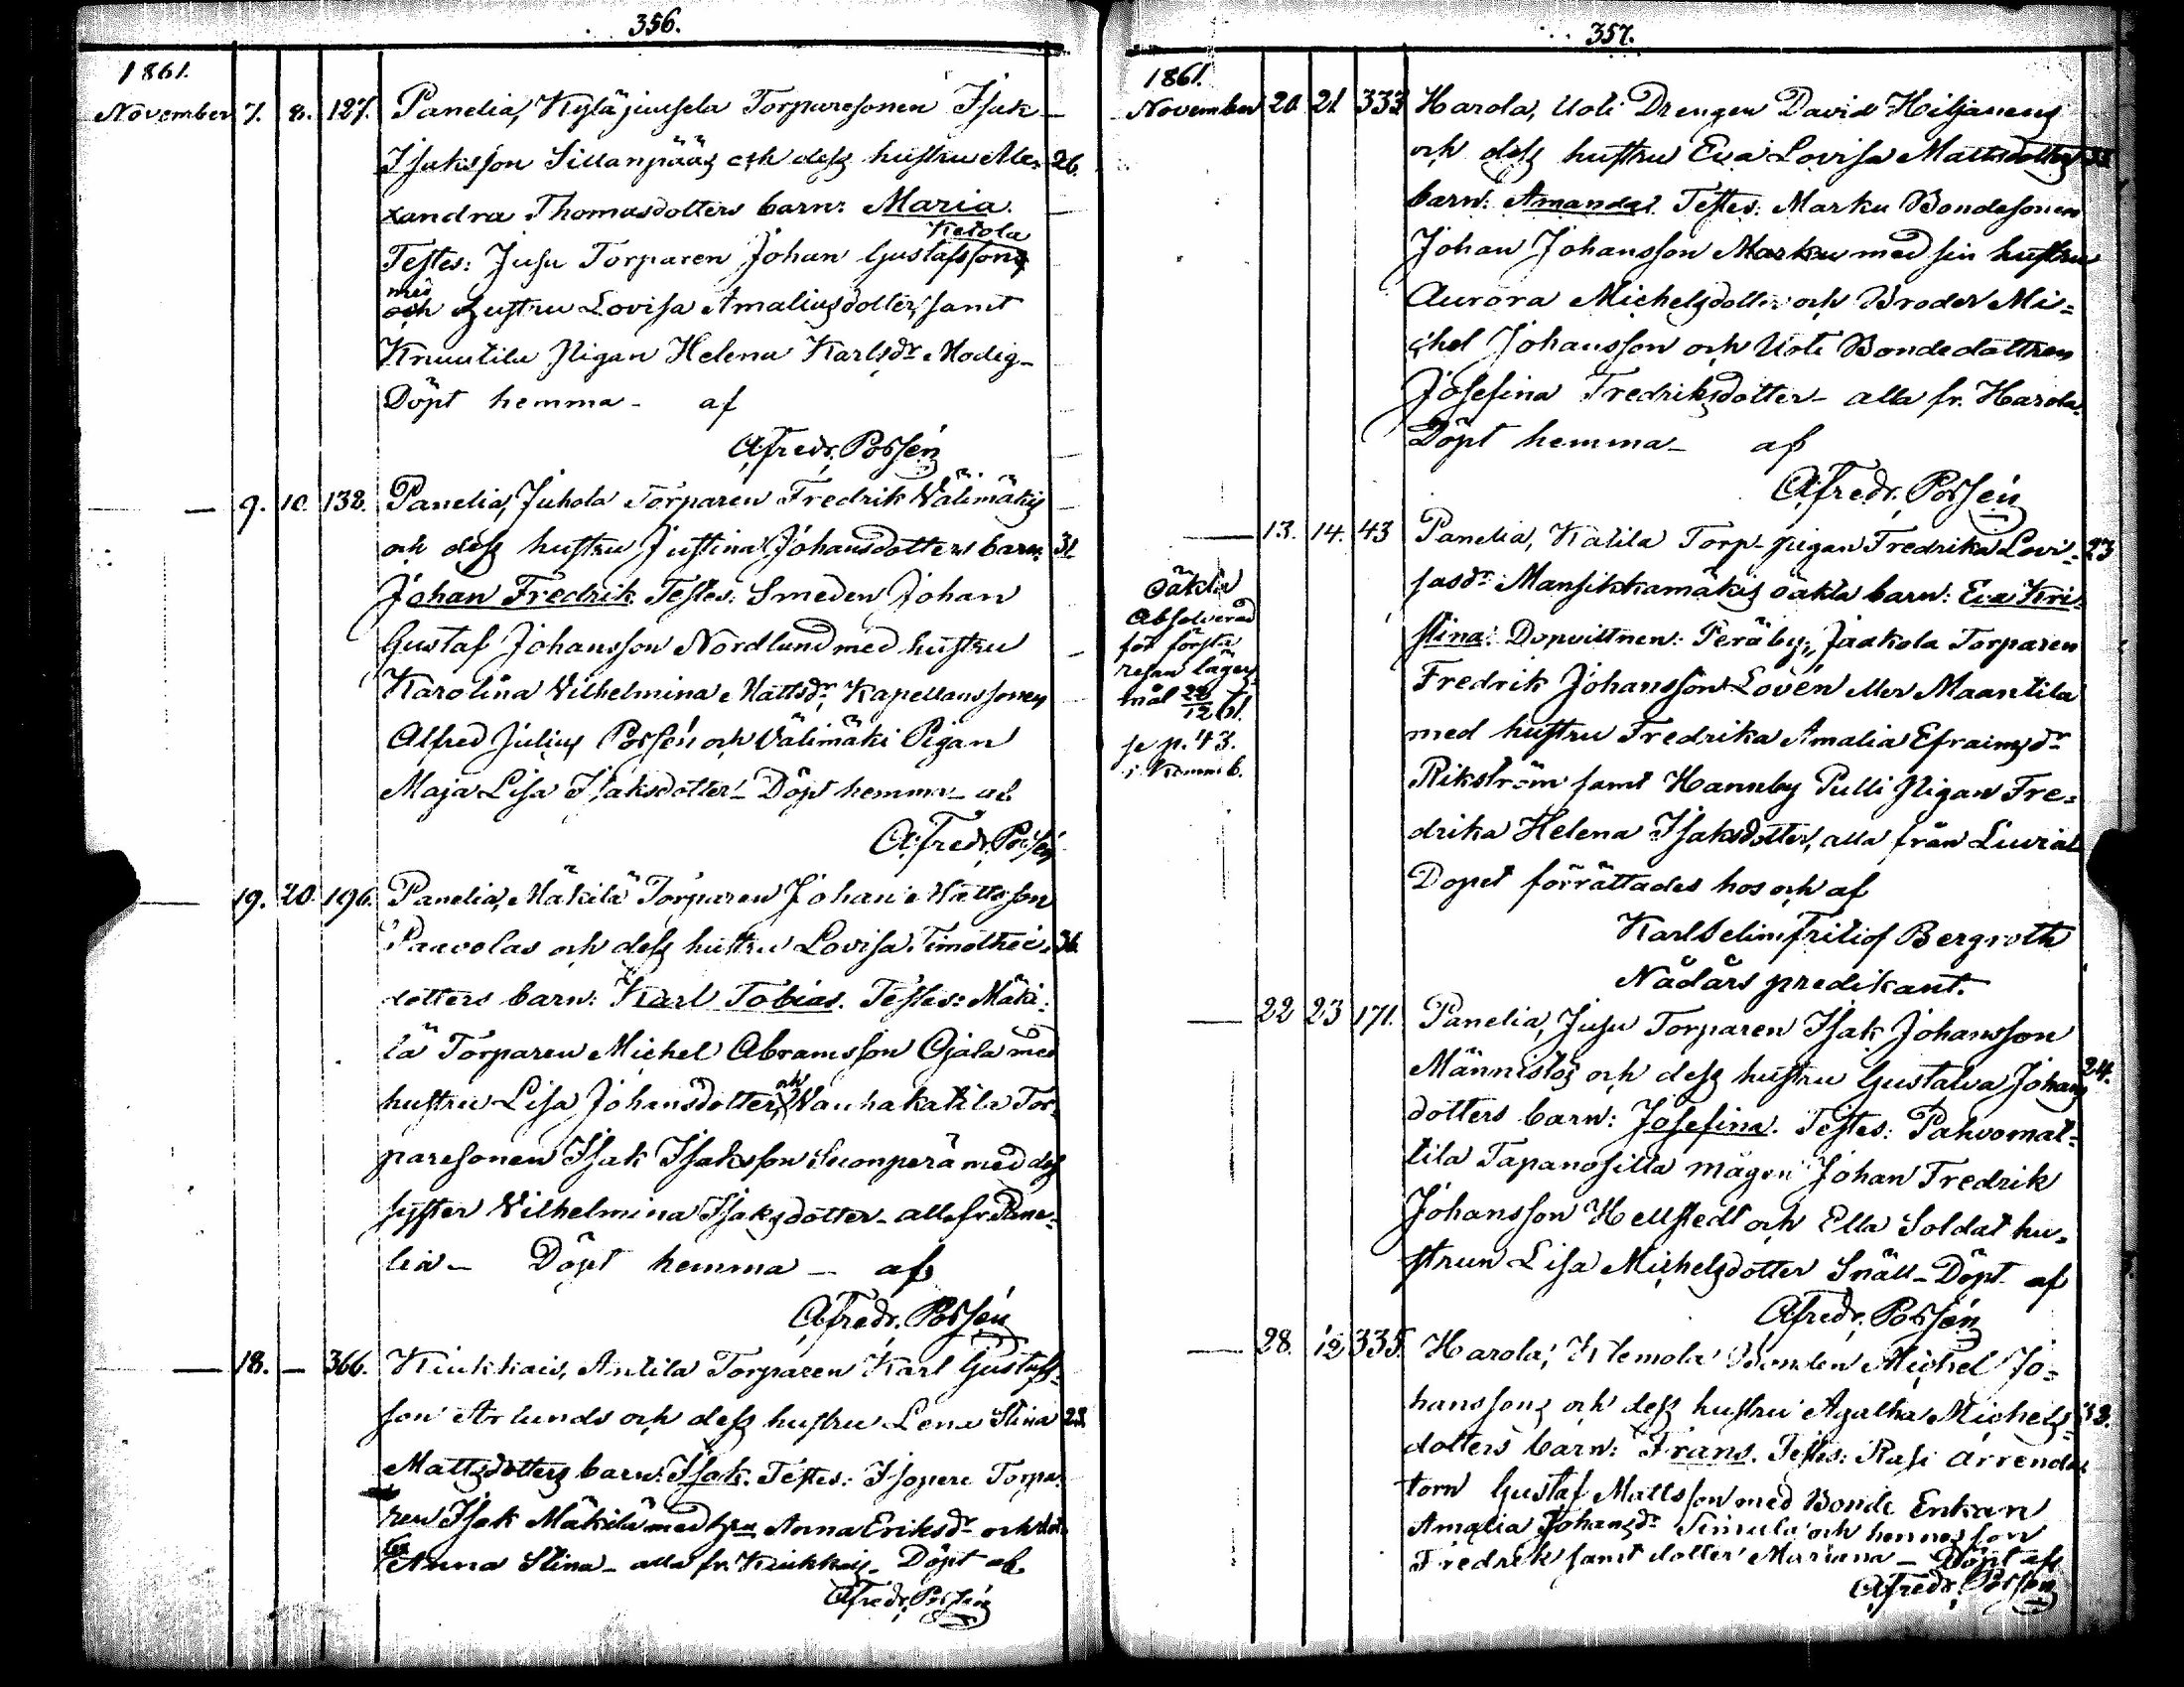 356.
1861.
November 7. 8. 127. Panelia, Kyläjuusela Torparesonen Isak
Isaksson Sillanpääs och dess hustru Ale- 26.
xandra Thomasdotters barn: Maria.
Ketola
Testes: Jusu Torparen Johan Gustafsson
med
och Hustru Lovisa Amaliusdotter, samt
Knuutila Pigan Helena Karlsdr Modig-
Döpt hemma - af
A. Fredr. Possén
— 9. 10. 138. Panelia, Juhola Torparen Fredrik Välimäkis
och dess hustru Justina Johansdotters barn: 31
Johan Fredrik. Testes: Smeden Johan
Gustaf Johansson Nordlund med hustru
Karolina Vilhelmina Mattsdr, Kapellanssonen
Alfred Julius Possén och Välimäki Pigan
Maja Lisa Isaksdotter - Döpt hemma - af
A. Fredr. Possén
— 19. 20. 196. Panelia, Mäkilä Torparen Johan Mattsson
Paavolas och dess hustru Lovisa Timothei- 36.
dotters barn: Karl Tobias. Testes: Mäki-
lä Torparen Michel Abramsson Ojala med
och
hustru Lisa Johansdotter, Vanhakatila Tor-
paresonen Isak Isaksson Suonperä med dess
syster Vilhelmina Isaksdotter - alla fr. Pane-
lia - Döpt hemma - af
A. Fredr. Possén
— 18. — 366. Kiukkais, Antila Torparen Karl Gustafs-
son Arlunds och dess hustru Lena Stina 28.
Mattsdotters barn: Isak. Testes: Isopere Torpa-
ren Isak Mäkilä med hru Anna Eriksdr och dot-
ter
Anna Stina - alla fr. Kiukkais - Döpt af
A. Fredr. Possén
357.
1861.
November 20. 21. 333 Harola, Uoti Drengen David Hiljanens
och dess hustru Eva Lovisa Mattsdotters
barn: Amanda. Testes: Marku Bondesonen
Johan Johansson Marku med sin hustru
Aurora Michelsdotter och Broder Mi-
chel Johansson och Uoti Bondedottren
Josefina Fredriksdotter - alla fr. Harola.
Döpt hemma - af
A. Fredr. Possén
— 13. 14. 43 Panelia, Katila Torp-pigan Fredrika Lovi- 23
sasdr Mansikkamäkis oäkta barn: Eva Kri-
stina. Dopvittnen: Peräby, Jaakola Torparen
Fredrik Johansson Lovén eller Maantila
med hustru Fredrika Amalia Efraimsdr
Rikström samt Hannby Pulli Pigan Fre-
drika Helena Isaksdotter, alla från Luvia
Dopet förrättades hos och af
Karl Selim Fritiof Bergroth
Nådårs predikant.
Oäkta
Absolverad
för första
resan läger-
mål 28/12 61.
se p. 43.
i Komm.b.
— 22 23 171. Panelia, Jusu Torparen Isak Johansson
Männistös och dess hustru Gustava Johans- 24.
dotters barn: Josefina. Testes: Pahvomat-
tila Tapanosilla mågen Johan Fredrik
Johansson Hellstedt och Ella Soldat hu-
strun Lisa Michelsdotter Snäll - Döpt af
A. Fredr. Possén
— 28. 335. Harola, Klemola Bonden Michel Jo-
hanssons och dess hustru Agatha Michels- 38.
dotters barn: Frans. Testes: Rasi Arrenda-
torn Gustaf Mattsson med Bonde Enkan
Amalia Johansdr Simula och hennes son
Fredrik samt dotter Mariana - Döpt af
A. Fredr. Possén